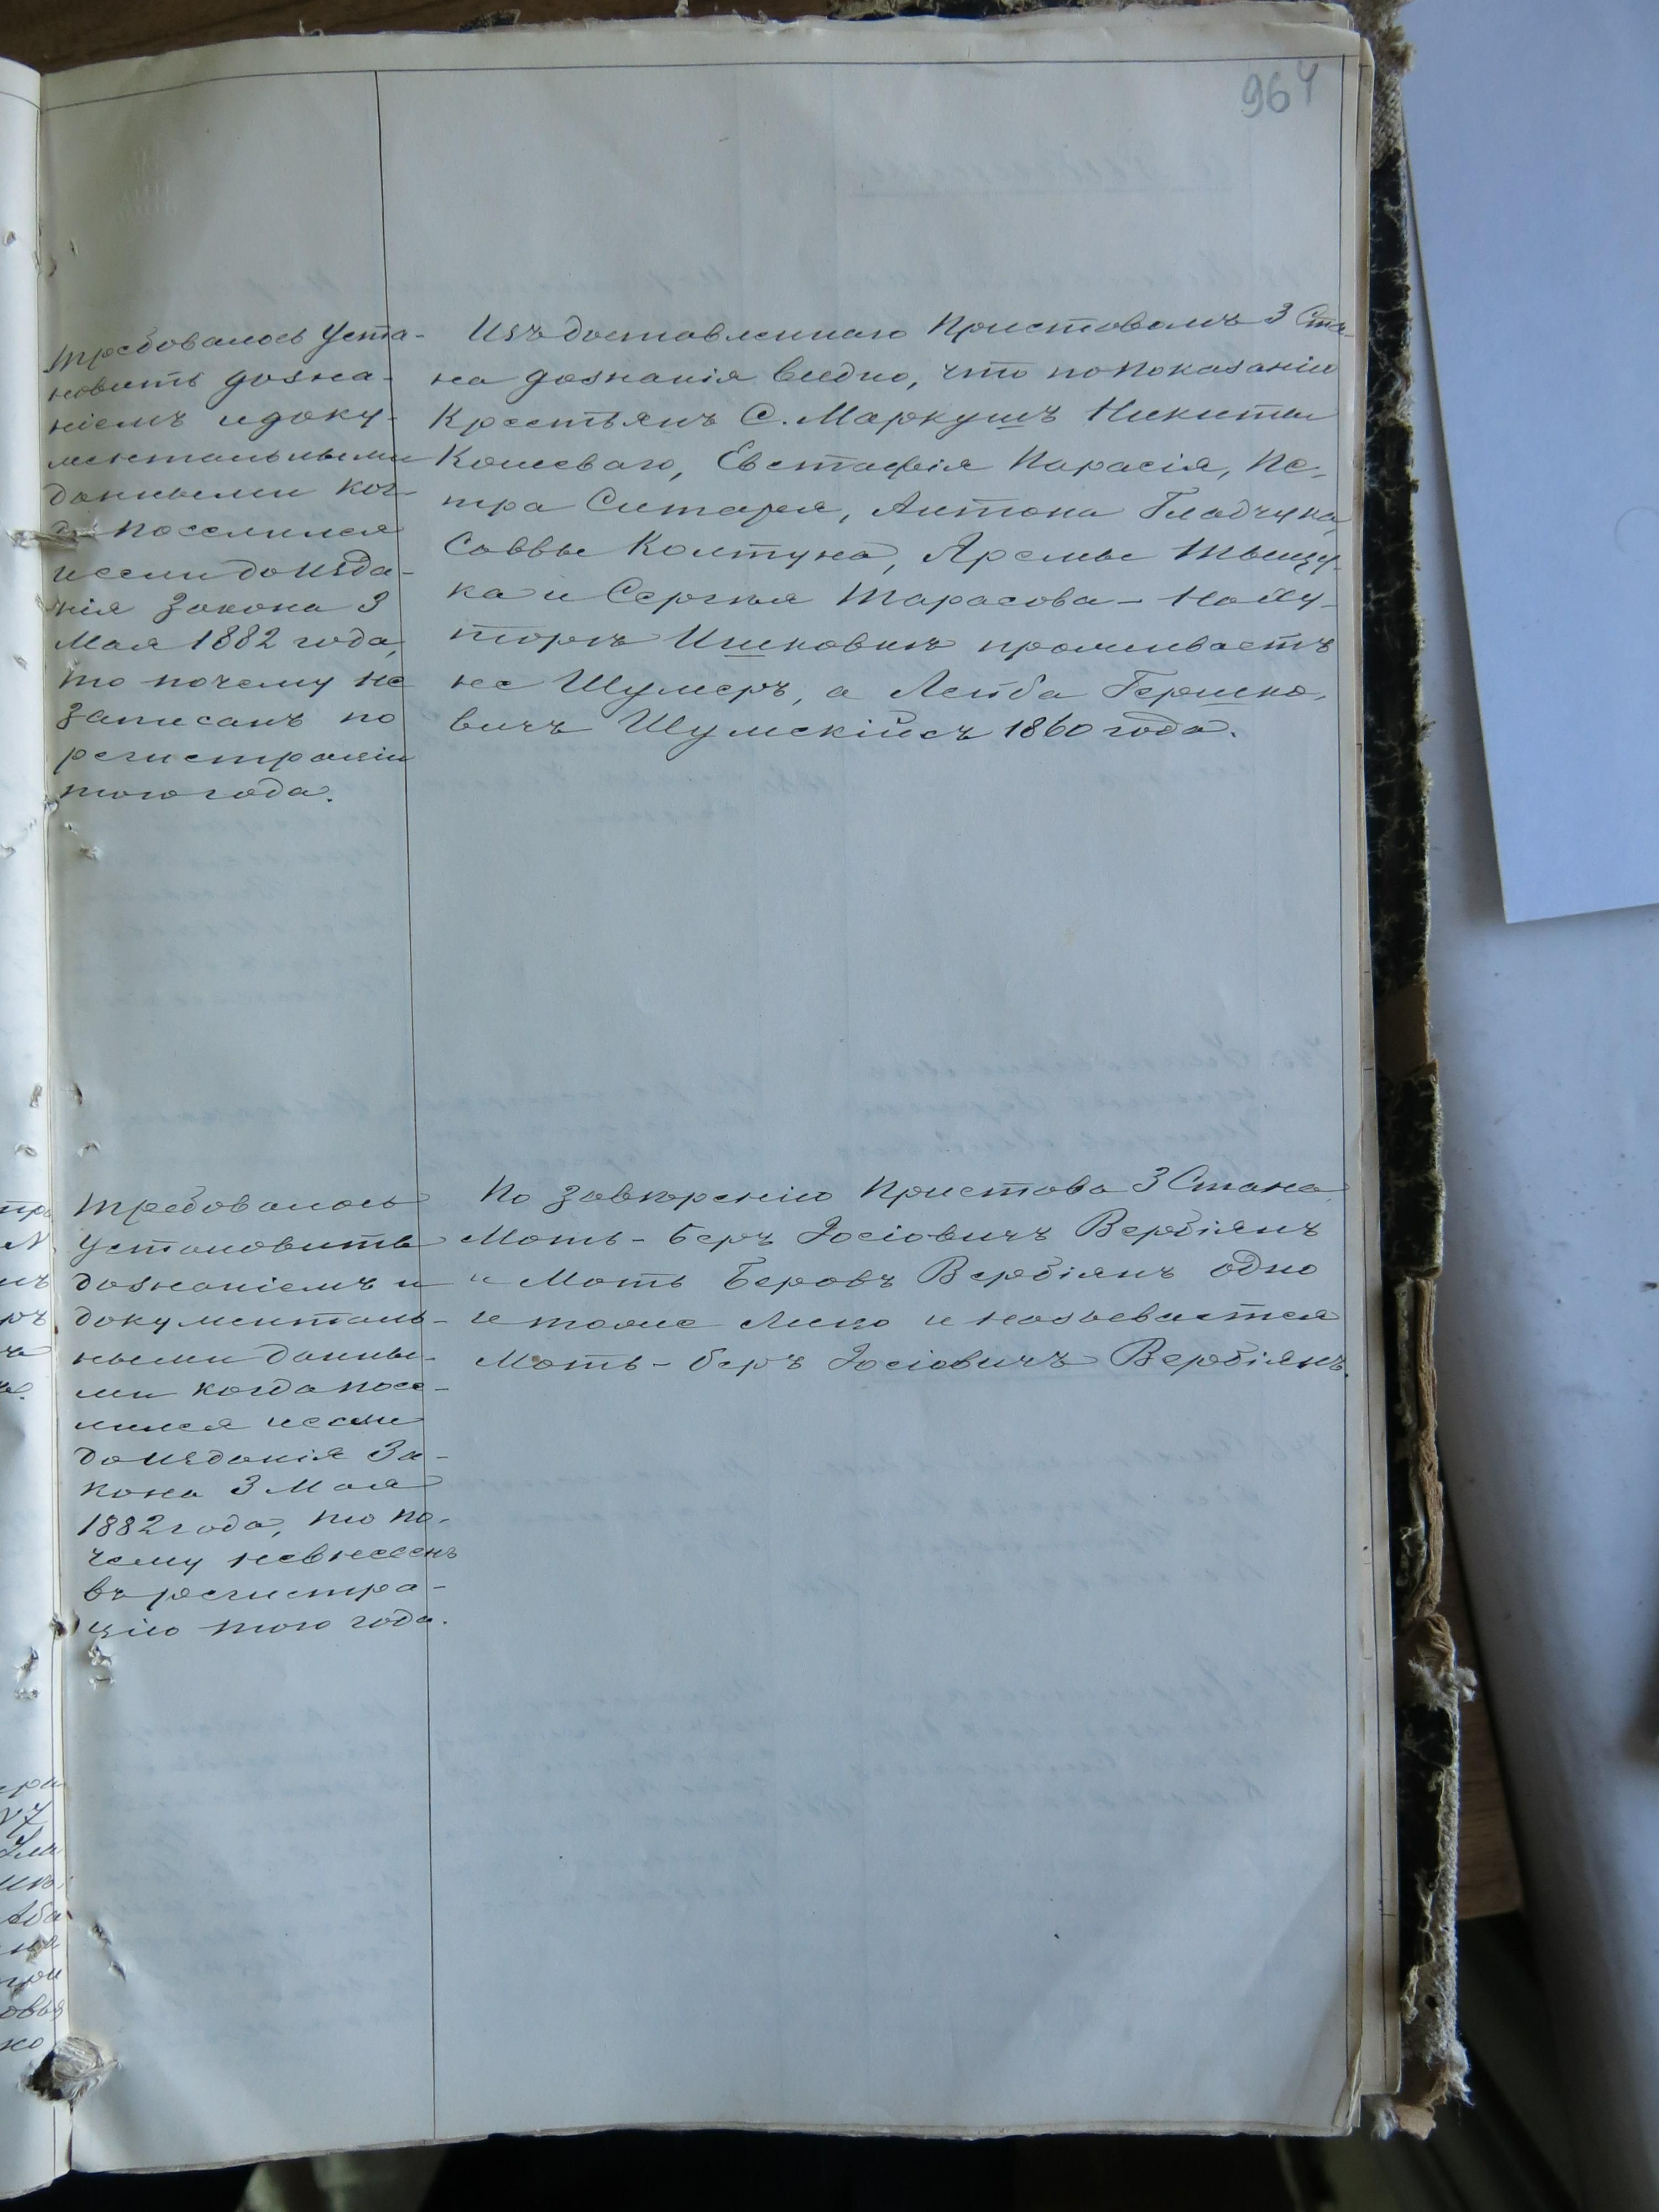 964
Требовалось Уста-
новить дозна-
ніемъ и доку-
ментальными
данными ког-
да поселился
и если до изда-
нія Закона 3
Мая 1882 года,
то почему не
записанъ по
регистраціи
того года.
Изъ доставленнаго Приставомъ 3 Ста-
на дознанія видно, что по показанію
Крестьянъ С. Маркушъ Никиты
Кошеваго, Евстафія Парасія, Пе-
тра Ситаря, Антона Гладчука,
Саввы Колтуна, Яремы Тышу-
ка и Сергѣя Тарасова - На Ху-
торѣ Ишковихъ проживаетъ
не Шулеръ, а Лейба Гершко-
вичъ Шумскій съ 1860 года.
Требовалось
Установить
дознаніемъ и
документаль-
ными данны-
ми когда посе-
лился и если
до изданія За-
кона 3 Мая
1882 года, то по-
чему не внесенъ
въ регистра-
цію того года.
По завѣренію Пристава 3 Стана
Моть-Беръ Іосіовичъ Вербіянъ
и Моть Беровъ Вербіянъ одно
и тоже лицо и называется
Моть-беръ Іосіовичъ Вербіянъ.